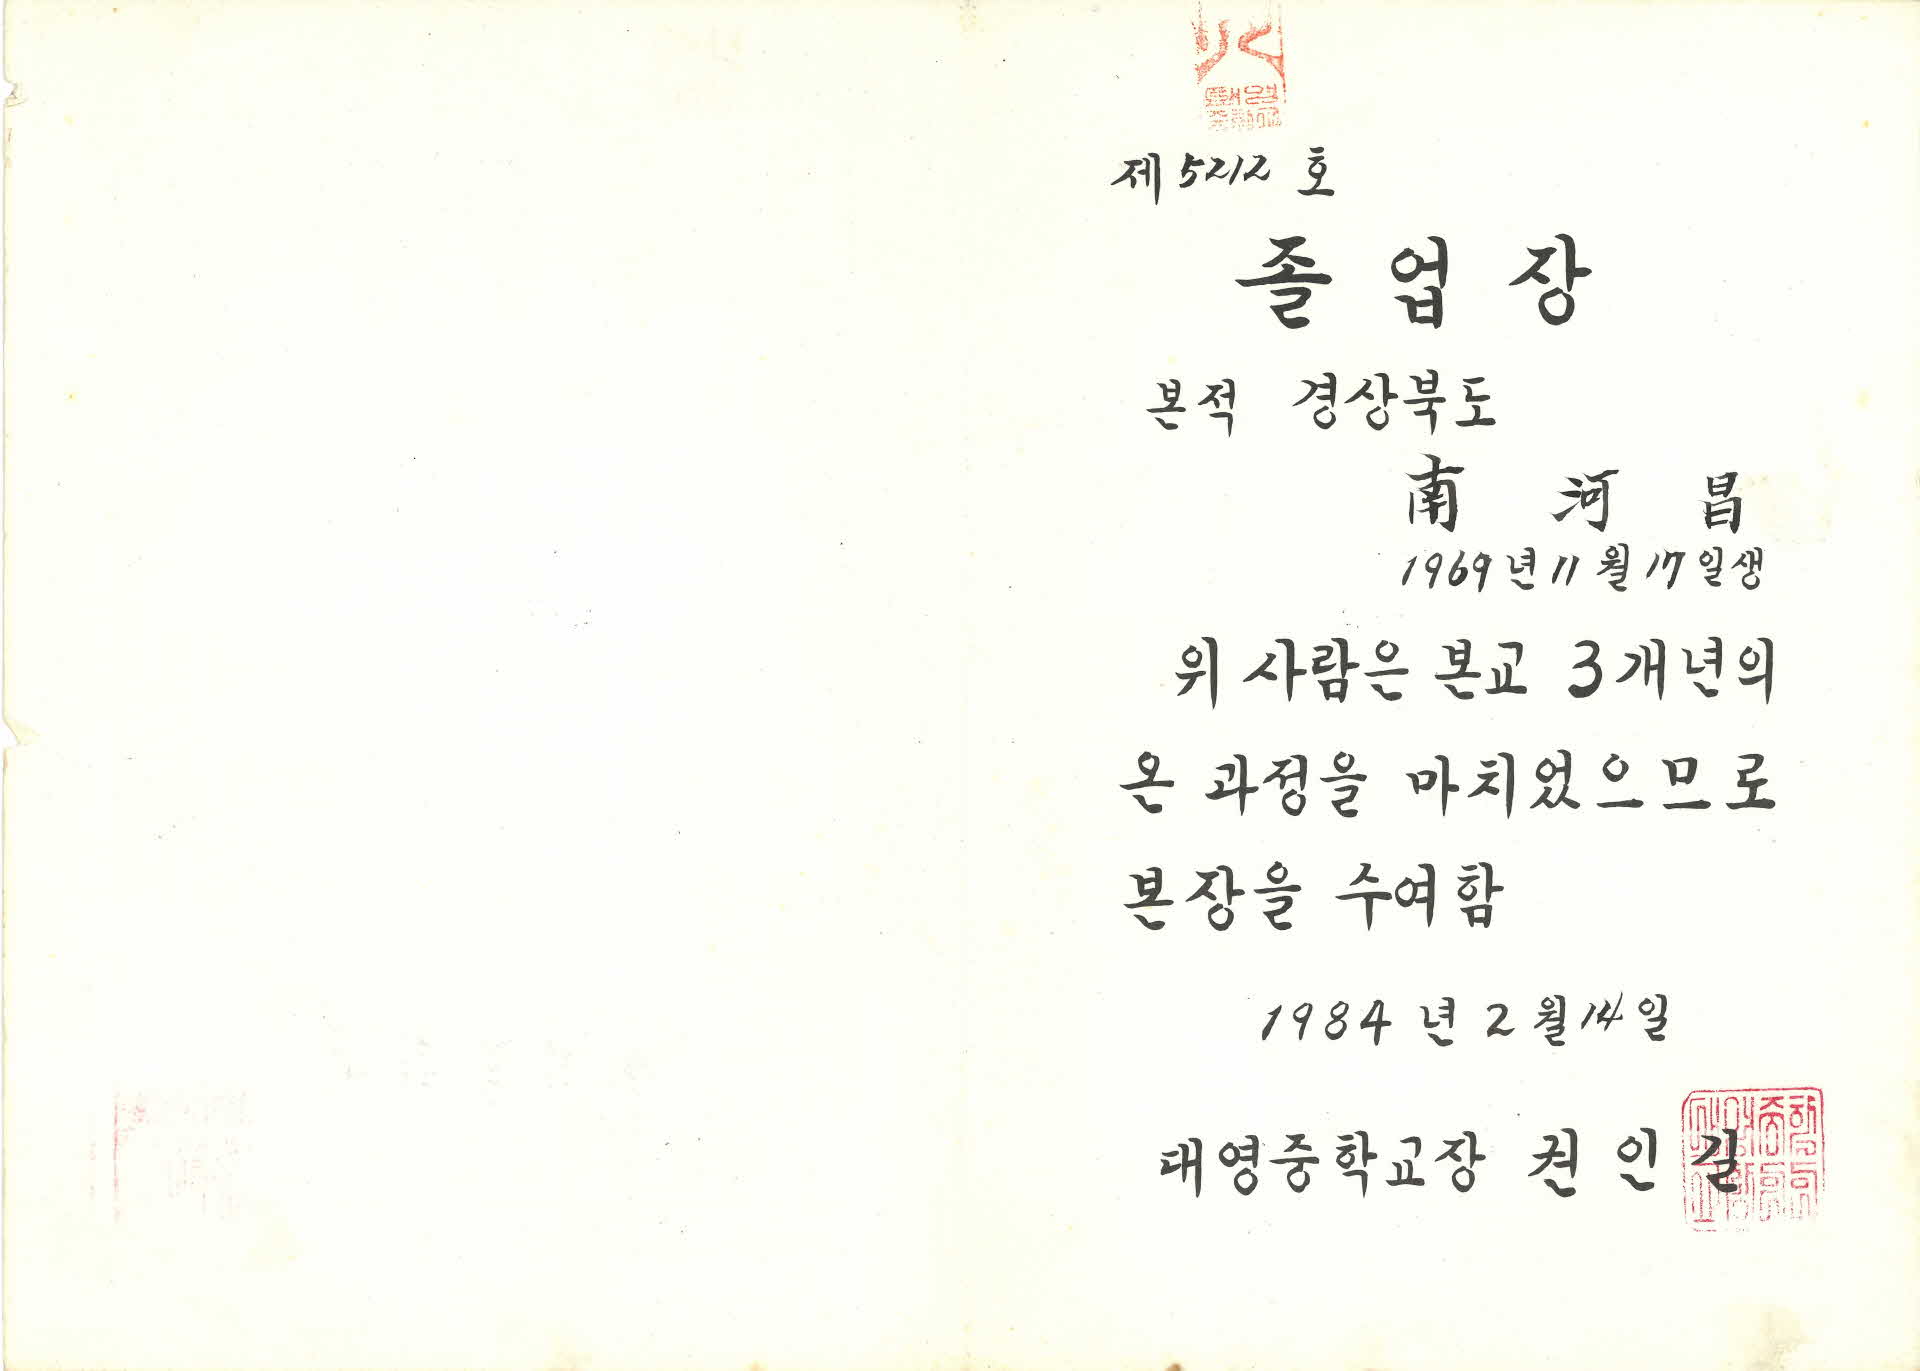 제 5212 호
졸업장
본적 경상북도
南 河 昌
1969년 11월 17일생
위 사람은 본교 3개년의
온 과정을 마치었으므로
본장을 수여함
1984년 2월 14일
대영중학교장 권인길